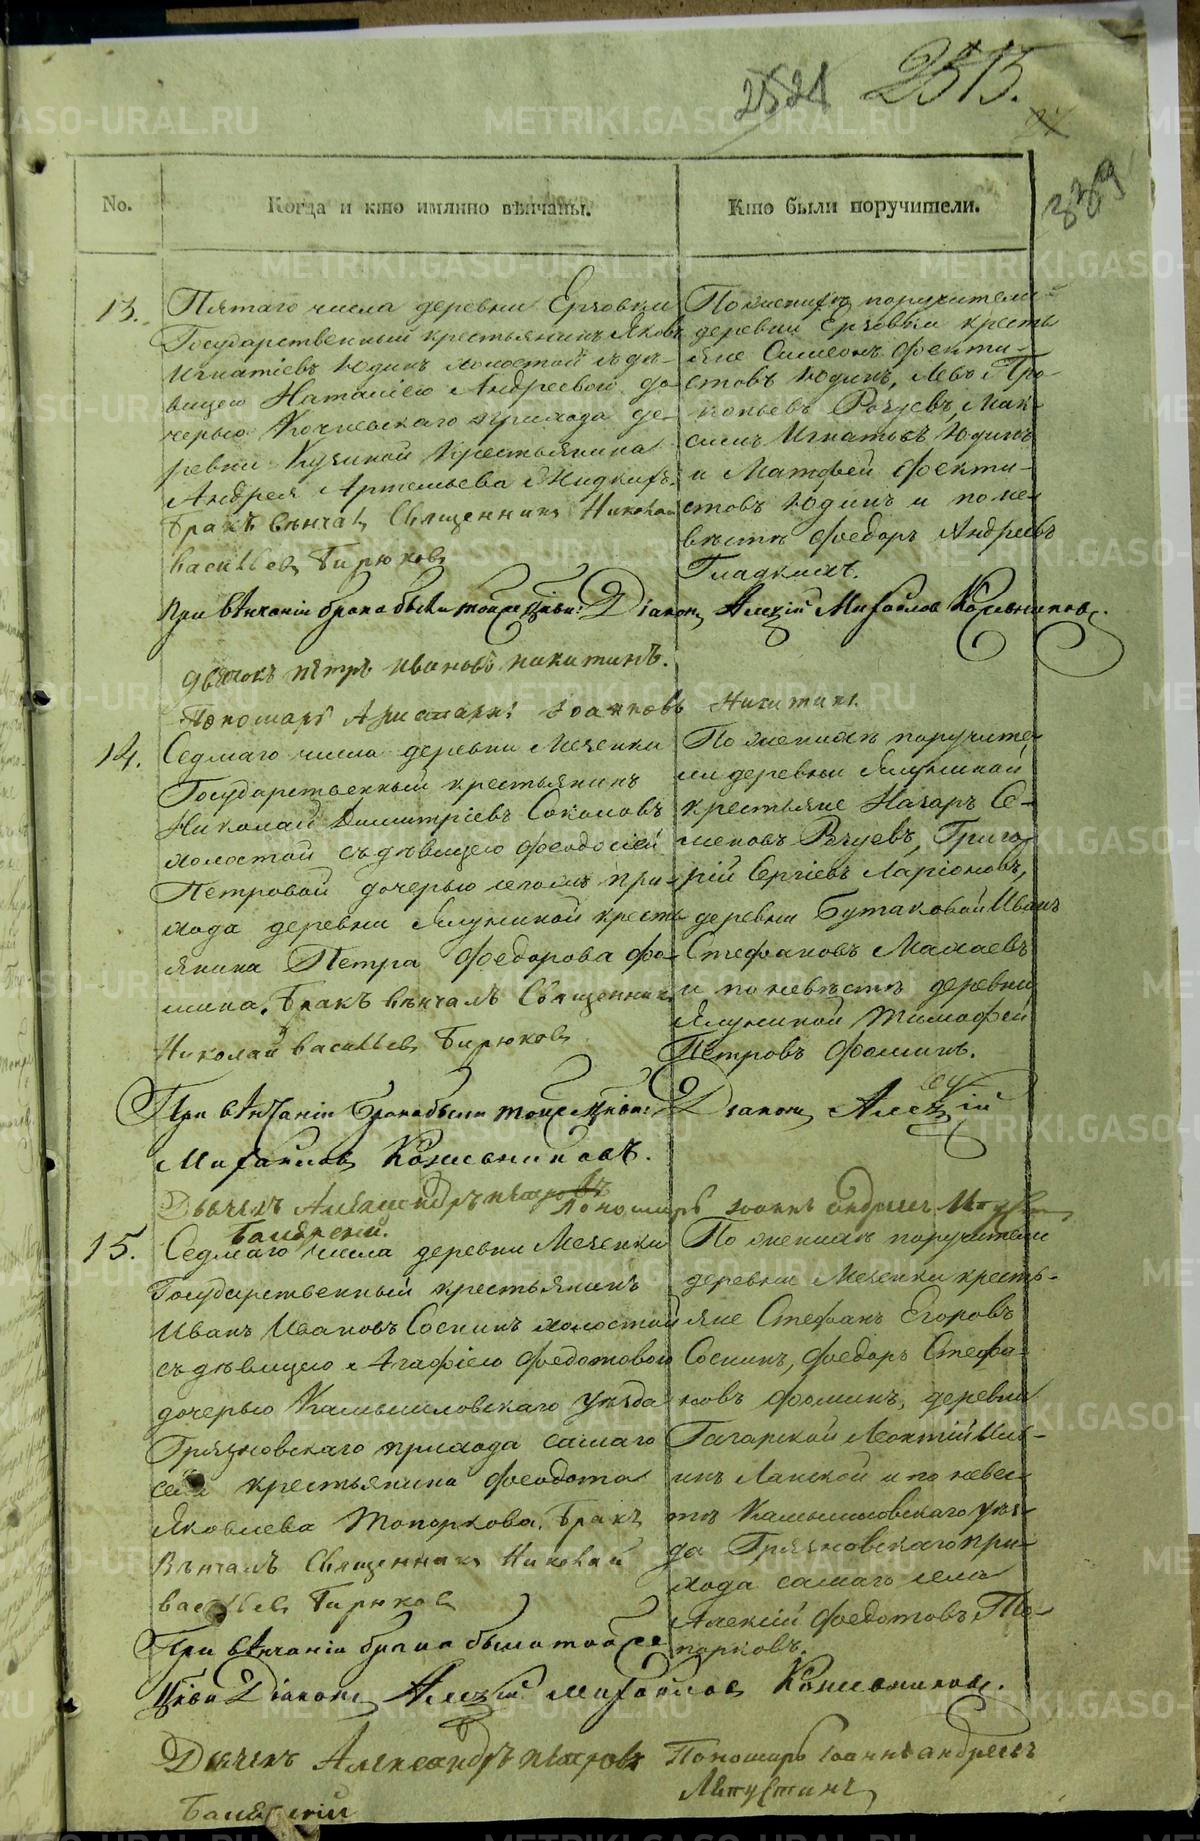 2521 2515.
339
No. Когда и кто имянно вѣнчаны. Кто были поручители.
13. Пятаго числа деревни Ерзовки
Государственный крестьянинъ Яковъ
Игнатіевъ Юдинъ холостой съ дѣ-
вицею Наталіею Андреевой до-
черью Кочневскаго прихода де-
ревни крестьянина
Андрея Артемьева Жидкихъ.
Бракъ вѣнчалъ Священникъ Николай
Васильевъ Бирюковъ
По женихѣ поручители
деревни Ерзовки кресть
яне Симеонъ Фекти-
стовъ Юдинъ, Левъ Про-
копьевъ Рочуевъ, Мак-
симъ Игнатьевъ Юдинъ
и Матфей Фекти-
стовъ Юдинъ и по не-
вѣстѣ Феодоръ Андреевъ
Гладкихъ.
При вѣнчаніи брака были тойже церкви: Діаконъ Алексій Михайловъ Кожевниковъ.
Дьячокъ Петръ Ивановъ Никитинъ.
Пономарь Аристархъ Іоанновъ Никитинъ
14. Седмаго числа деревни Мезенки
Государственный крестьянинъ
Николай Димитріевъ Соколовъ
холостой съ дѣвицею Феодосіей
Петровой дочерью сегожъ при-
хода деревни Ялуниной кресть
янина Петра Федорова Фо-
мина. Бракъ вѣнчалъ Священникъ
Николай Васильевъ Бирюковъ
По женихѣ поручите-
ли деревни Ялуниной
крестьяне Назаръ Се-
меновъ Рочуевъ, Григо-
рій Сергіевъ Ларіоновъ,
деревни Бутаковой Иванъ
Стефановъ Махаевъ
и по невѣстѣ деревни
Ялуниной Тимофей
Петровъ Фоминъ.
При вѣнчаніи брака были тойже церкви: Діаконъ Алексій
Михайловъ Кожевниковъ.
Дьячекъ Александръ Петровъ Пономарь Іоаннъ Андреевъ
15. Седмаго числа деревни Мезенки
Государственный крестьянинъ
Иванъ Ивановъ Соснинъ холостой
съ дѣвицею Агафіею Федотовою
дочерью Камышловскаго уѣзда
Грязновскаго прихода самаго
села крестьянина Феодота
Яковлева Топоркова. Бракъ
Вѣнчалъ Священникъ Николай
Васильевъ Бирюковъ
По женихѣ поручители
деревни Мезенки кресть-
яне Стефанъ Егоровъ
Соснинъ, Федоръ Стефа-
новъ Фоминъ, деревни
Гагарской Леонтій Иль-
инъ Ланской и по невес-
тѣ Камышловскаго уѣз-
да Грязновскаго при-
хода самаго села
Алексій Федотовъ То-
порковъ.
При вѣнчаніи брака были тойже
церкви Діаконъ Алексій Михайловъ Кожевниковъ.
Дьячекъ Александръ Петровъ Пономарь Іоаннъ Андреевъ
METRIKI.GASO-URAL.RU